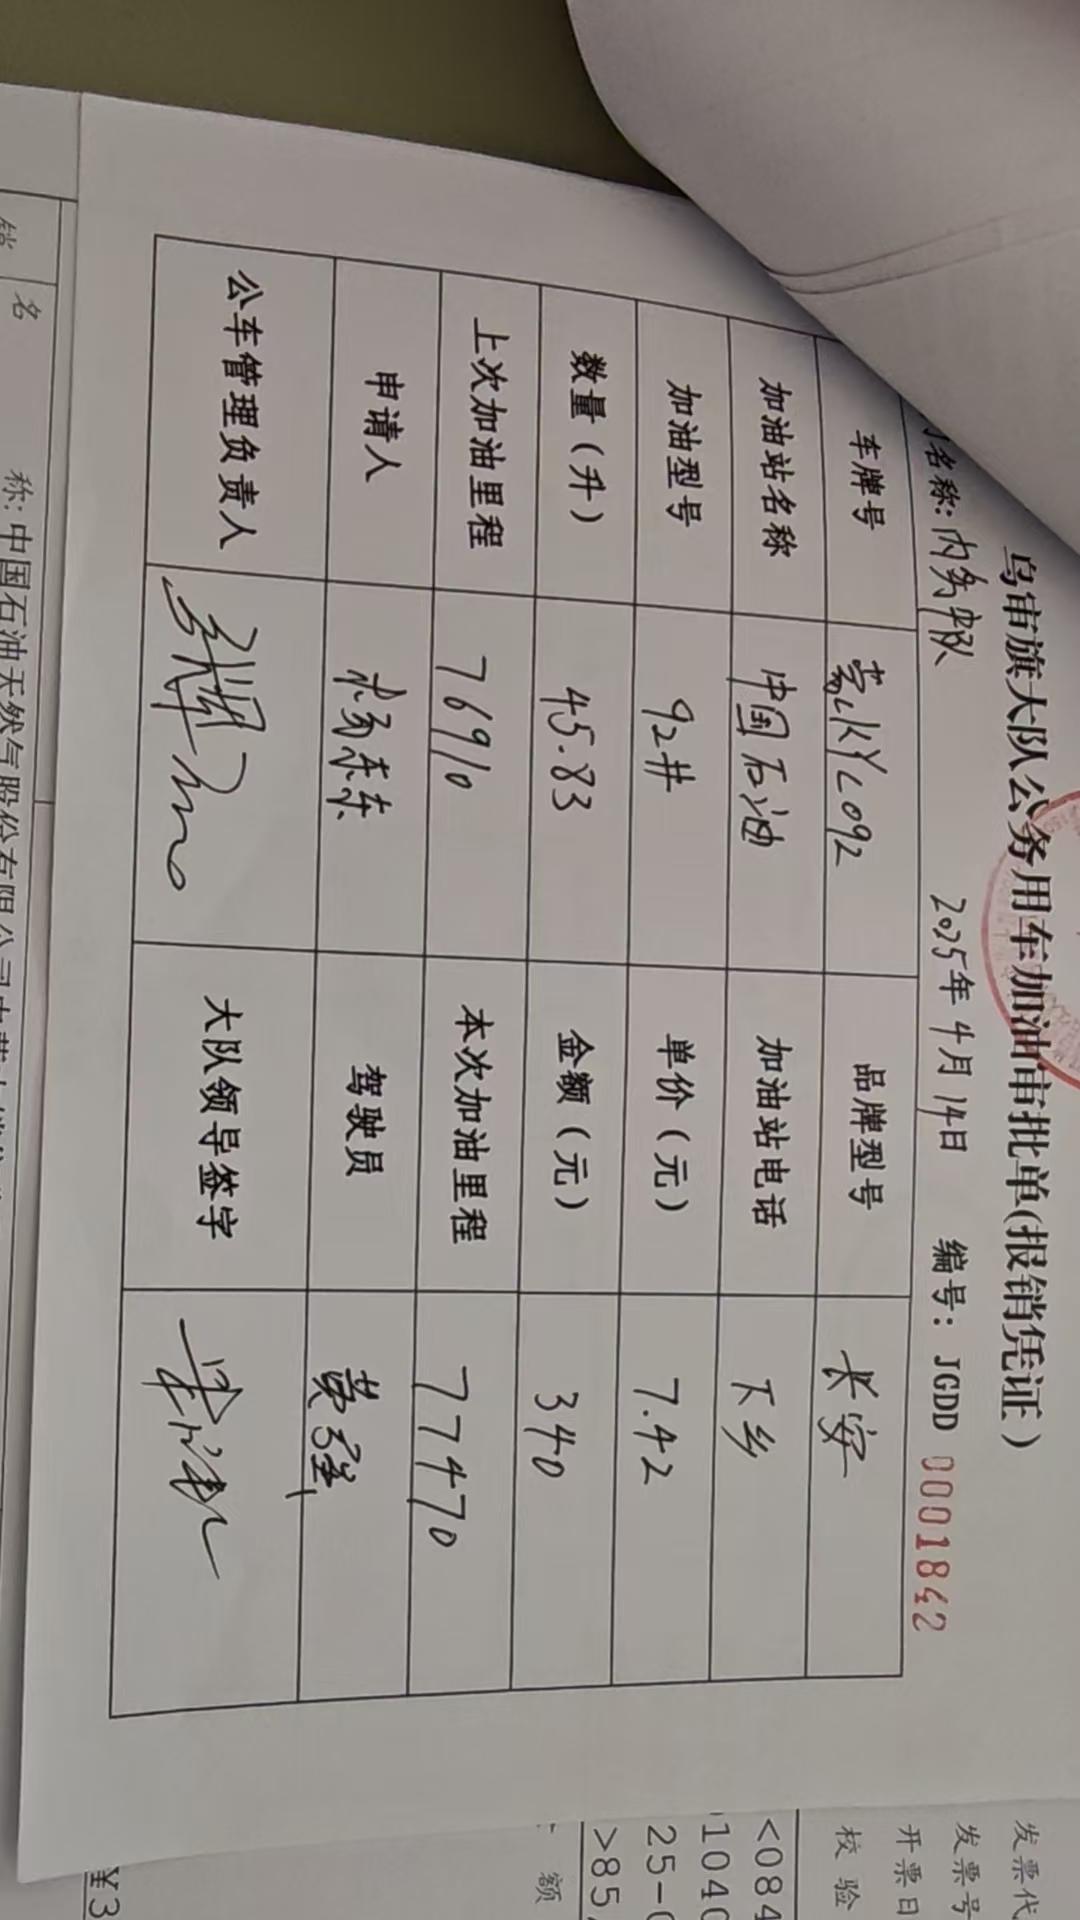 乌审旗大队公务用车加油审批单(报销凭证)
名称: 内务中队 2025年4月14日 编号: JGDD 0001842
车牌号 蒙KYL092 品牌型号 长安
加油站名称 中国石油 加油站电话 下乡
加油型号 92# 单价(元) 7.42
数量(升) 45.83 金额(元) 340
上次加油里程 76910 本次加油里程 77470
申请人 驾驶员 黄
公车管理负责人 大队领导签字
销 名 称: 中国石油天然气股份有限公司内蒙古销售
发票代
发票号
开票日
校 验
<084
1040
25-0
>85
额
¥3